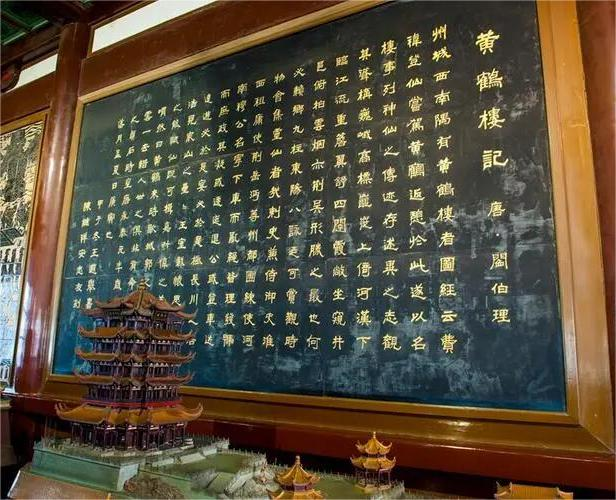 黃鶴樓記 唐·閻伯理
州城西南隅有黃鶴樓者圖經云費
禕登仙嘗駕黃鶴返憩於此遂以名
樓事列神仙之傳迹存述異之志觀
其聳構巍峨高標巃嵸上倚河漢下
臨江流重簷翼舒四闥霞敞坐窺井
邑俯拍雲烟亦荆吴形勝之最也何
必賴鄉九柱東陽八詠迺可賞觀時
物會集靈仙者哉刺史兼侍御史淮
西租庸使荆岳沔等州都團練使河
南穆公名寧下車而亂繩皆理發號
而庶政其凝或逶迤退公或登車送
遠遊必於是宴必於是極長川之浩
浩見衆山之纍纍王室載懷思
之能賦仙蹤可揖嘉叔偉之
喟然曰黃鶴來時歌城郭
雲一去惜人世之俱非有命
兹貞石時皇唐永泰元年歲
落月孟夏日庚寅也
甲子冬王遐舉書
陳維祥安忠友刻